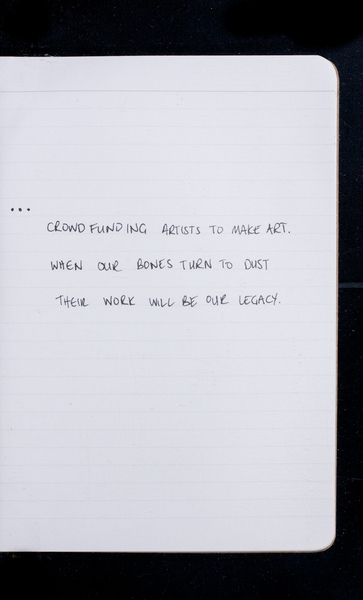 ...
CROWDFUNDING ARTISTS TO MAKE ART.
WHEN OUR BONES TURN TO DUST
THEIR WORK WILL BE OUR LEGACY.